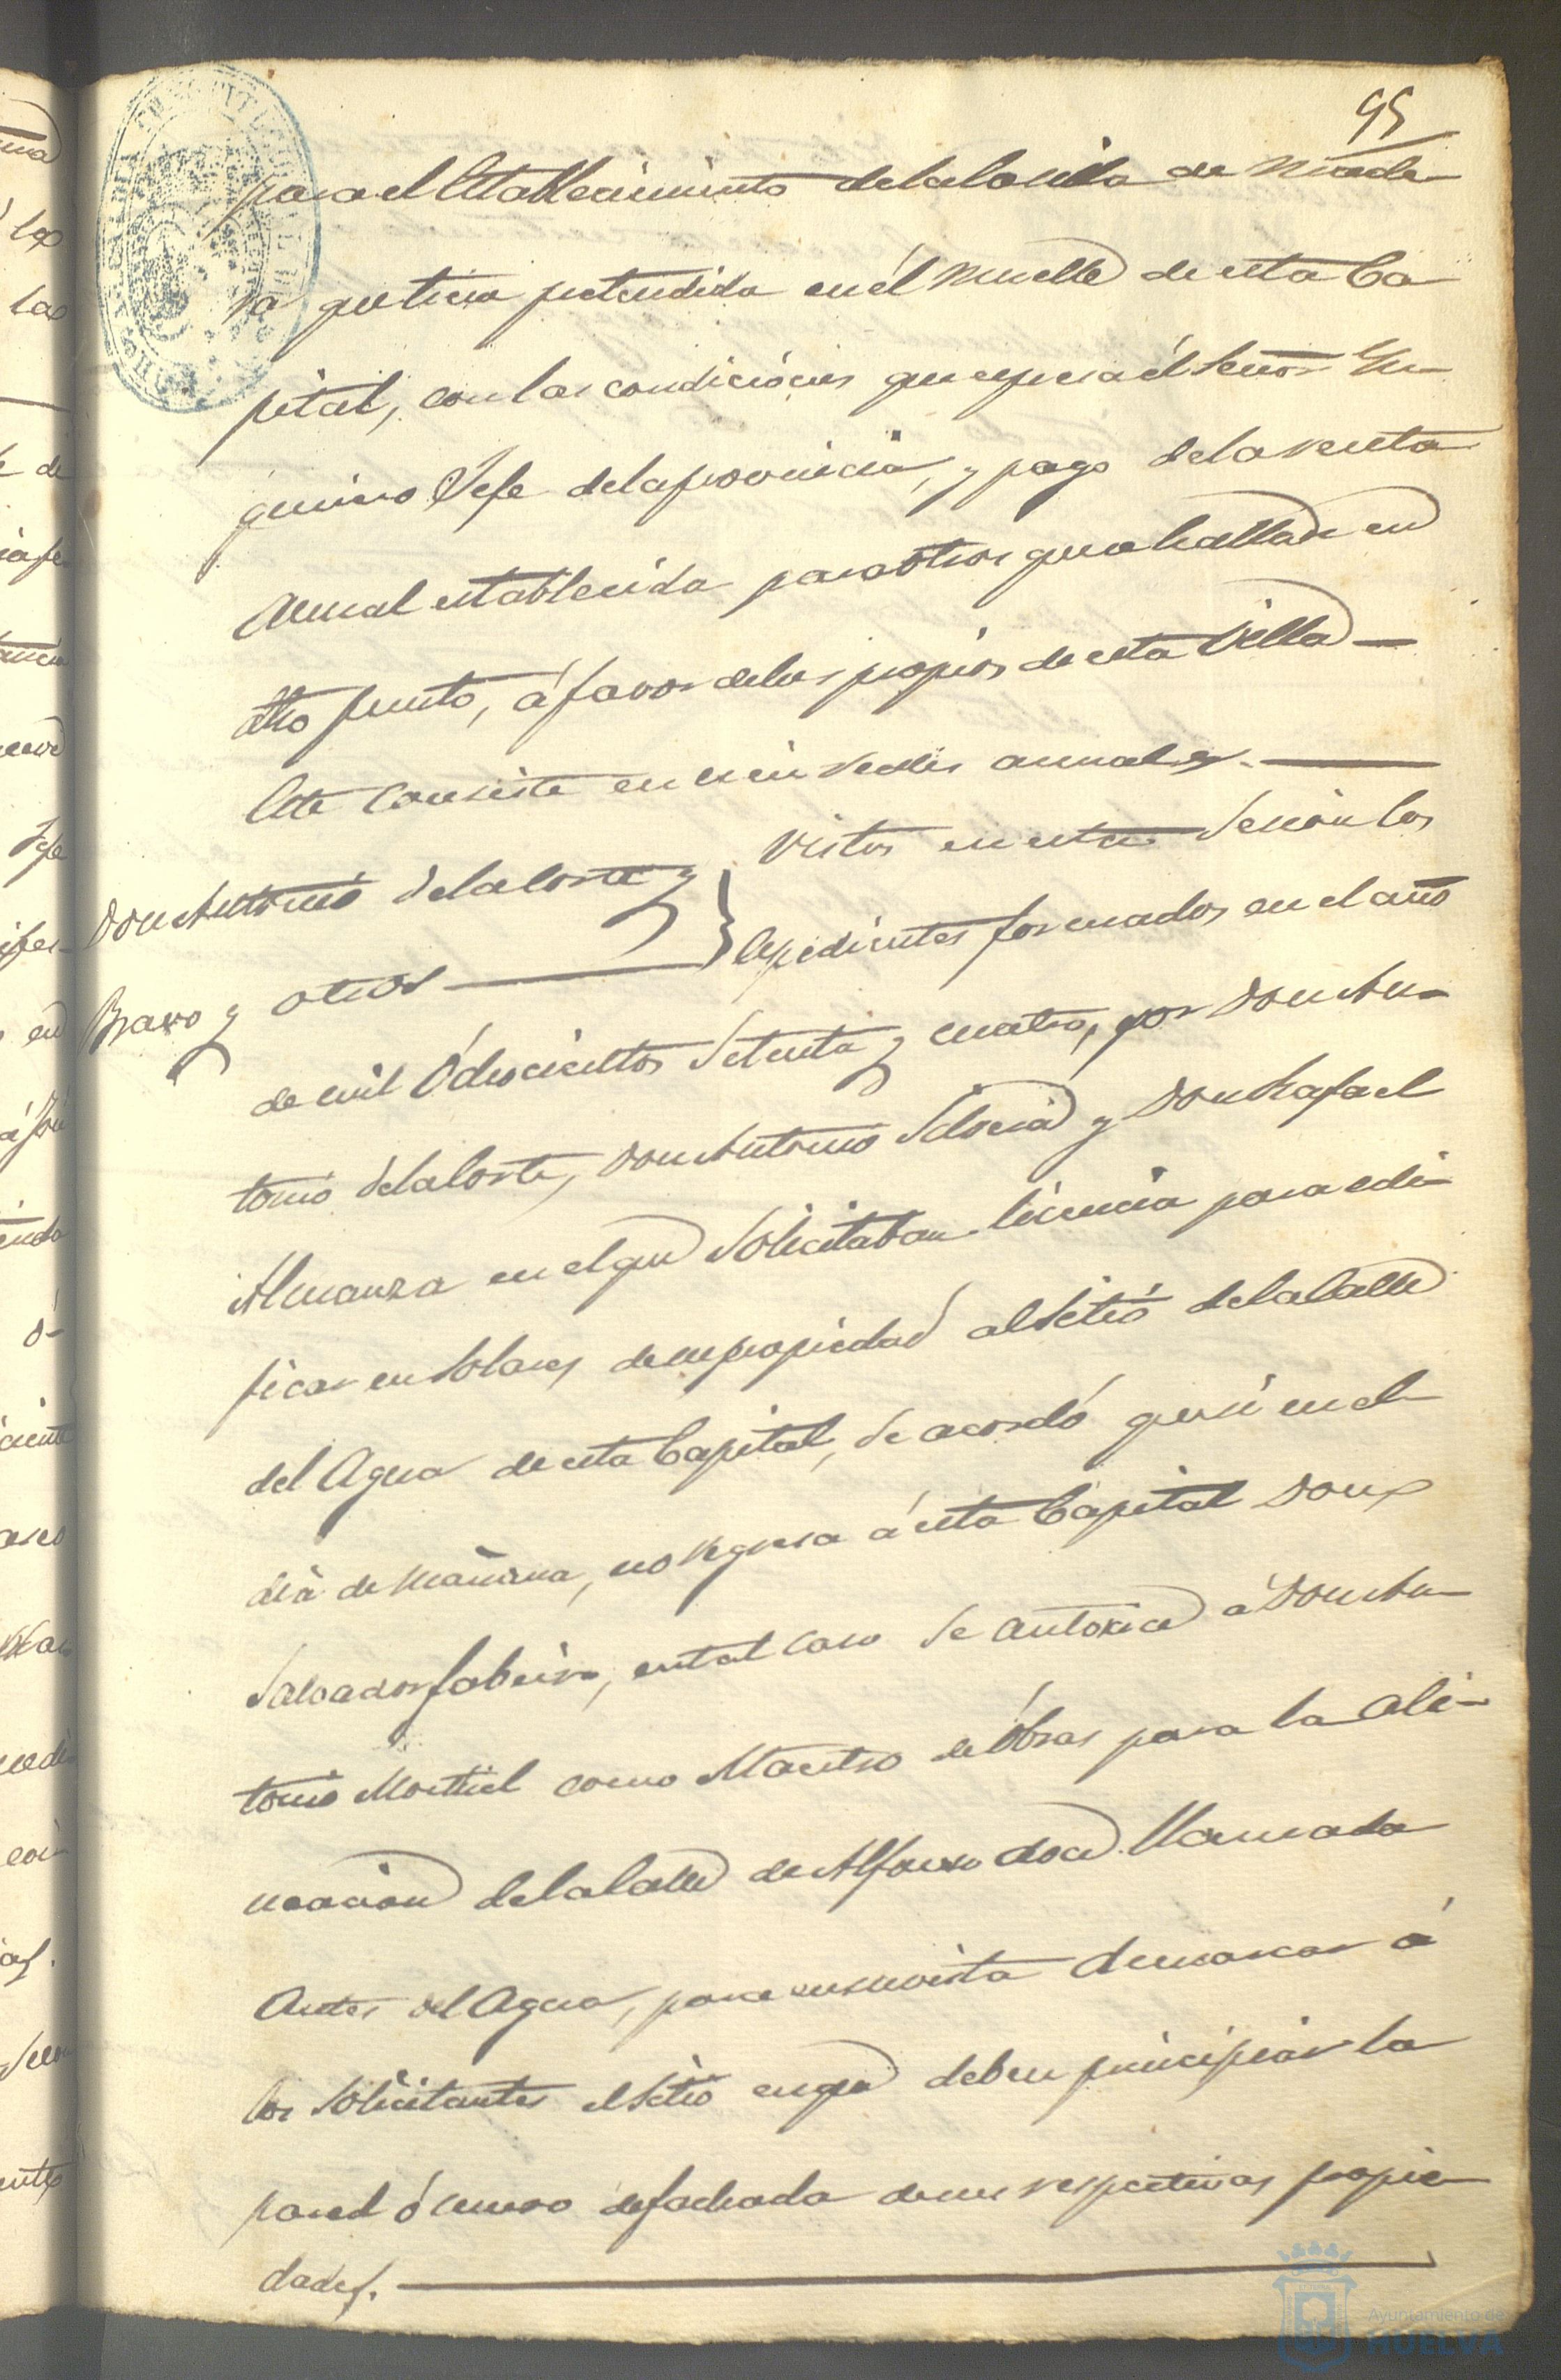 95
para el establecimiento de la Caseta de Made-
ra que tiene pretendida en él Muelle de esta Ca-
pital, con las condiciones que espresa él Señor In-
geniero Jefe de la provincia, y pago de la renta
Anual establecida para otros que se hallan en
dho punto, á favor de los propios de esta Villa —
Este Consiste en cien reales anuales. —
Don Antonio de la Corte y
Bravo y otros —
Vistos en esta Sesion los
Espedientes formados en el año
de mil Ochocientos Setenta y cuatro, por Don An-
tonio de la Corte, Don Antonio y Don Rafael
Almanza en el que Solicitaban licencia para edi-
ficar en Solares de su propiedad al Sitio de la Calle
del Agua de esta Capital, Se acordó que si en el
dia de Mañana, no regresa á esta Capital Don
Salvador, en tal caso Se autorice á Don An-
tonio Montiel como Maestro de Obras para la Ali-
neacion de la Calle de Alfonso doce llamada
Antes del Agua, para en su vista demarcar á
los Solicitantes el Sitio en que deben principiar la
pared ó muro de fachada de sus respectivas propie-
dades. —
Ayuntamiento de
HUELVA